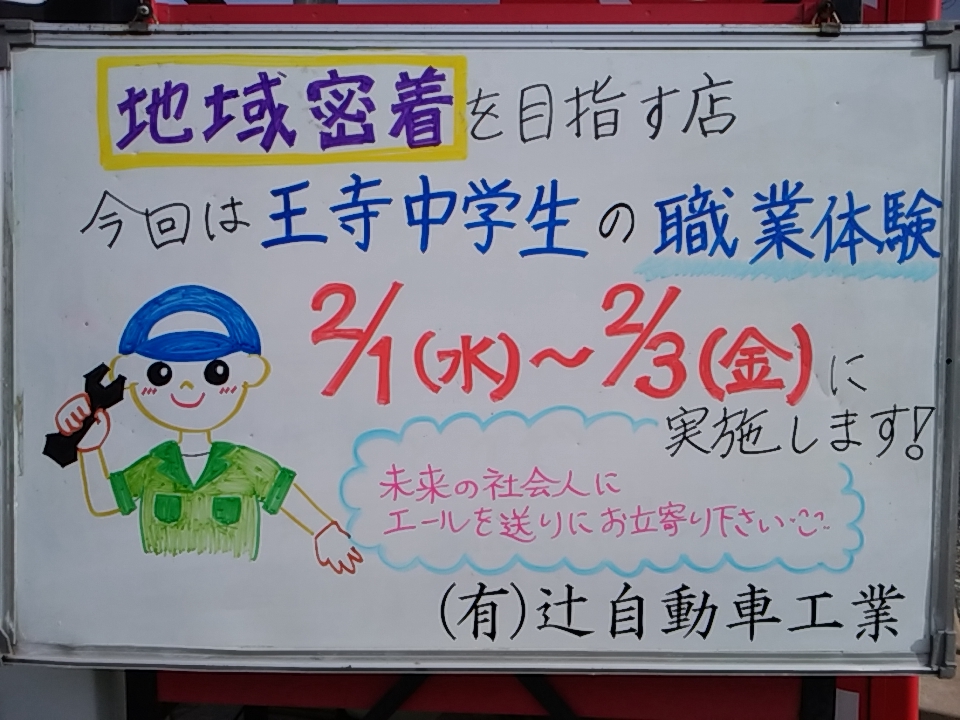 地域密着を目指す店
今回は王寺中学生の職業体験
2/1(水)～2/3(金)に
実施します!
未来の社会人に
エールを送りにお立寄り下さい
(有)辻自動車工業